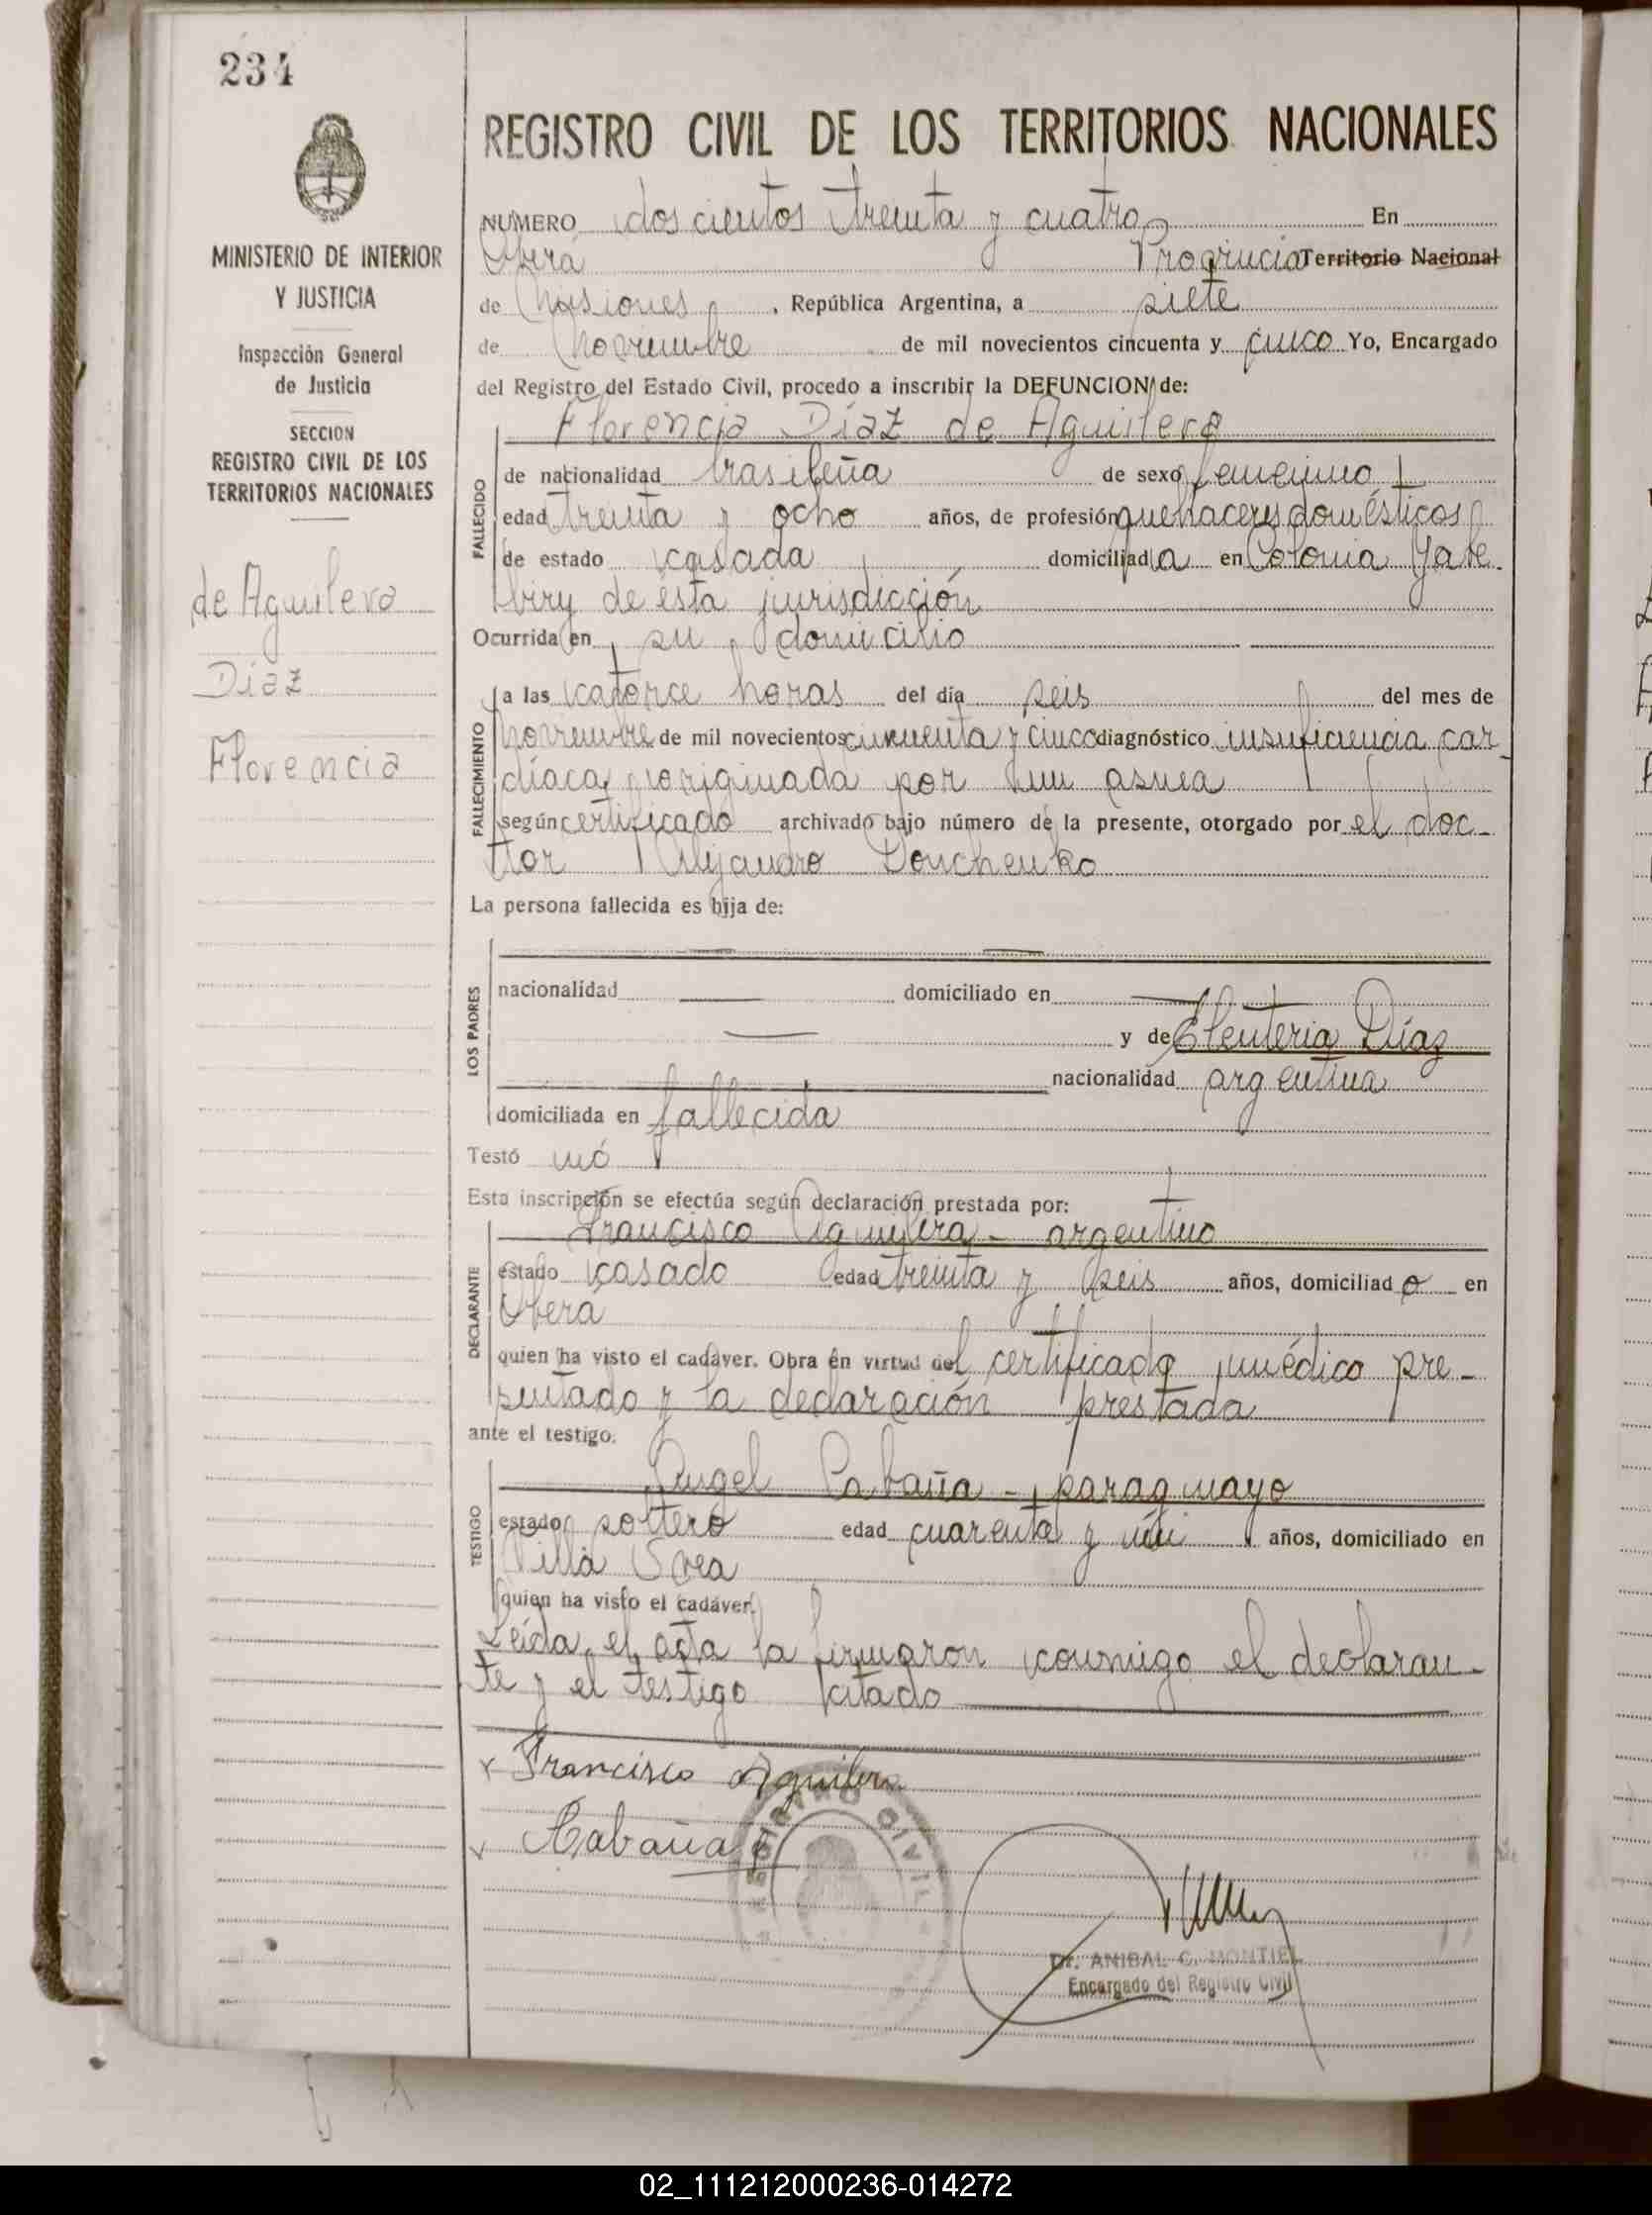 234
MINISTERIO DE INTERIOR
Y JUSTICIA
Inspección General
de Justicia
SECCION
REGISTRO CIVIL DE LOS
TERRITORIOS NACIONALES
de Aguilera
Díaz
Florencia
REGISTRO CIVIL DE LOS TERRITORIOS NACIONALES
NUMERO doscientos treinta y cuatro En
Oberá Provincia Territorio Nacional
de Misiones, República Argentina, a siete
de noviembre de mil novecientos cincuenta y cinco Yo, Encargado
del Registro del Estado Civil, procedo a inscribir la DEFUNCION de:
Florencia Díaz de Aguilera
FALLECIDO
de nacionalidad brasileña de sexo femenino
edad treinta y ocho años, de profesión quehaceres domésticos
de estado casada domiciliada en Colonia Yabe-
biry de ésta jurisdicción
Ocurrida en su domicilio
FALLECIMIENTO
a las catorce horas del día seis del mes de
noviembre de mil novecientos cincuenta y cinco diagnóstico insuficiencia car-
díaca originada por un asma
según certificado archivado bajo número de la presente, otorgado por el doc-
tor Alejandro Donchenko
La persona fallecida es hija de:
LOS PADRES
nacionalidad domiciliado en
y de Eleuteria Díaz
nacionalidad argentina
domiciliada en fallecida
Testó nó
Esta inscripción se efectúa según declaración prestada por:
DECLARANTE
Francisco Aguilera - argentino
estado casado edad treinta y seis años, domiciliado en
Oberá
quien ha visto el cadáver. Obra en virtud del certificado médico pre-
sentado y la declaración prestada
ante el testigo.
TESTIGO
Angel Cabaña - paraguayo
estado soltero edad cuarenta y un años, domiciliado en
Villa Svea
quien ha visto el cadáver.
Leída el acta la firmaron conmigo el declaran-
te y el testigo citado
x Francisco Aguilera
x Cabaña
REGISTRO CIVIL
Dr. ANIBAL C. MONTIEL
Encargado del Registro Civil
02_111212000236-014272